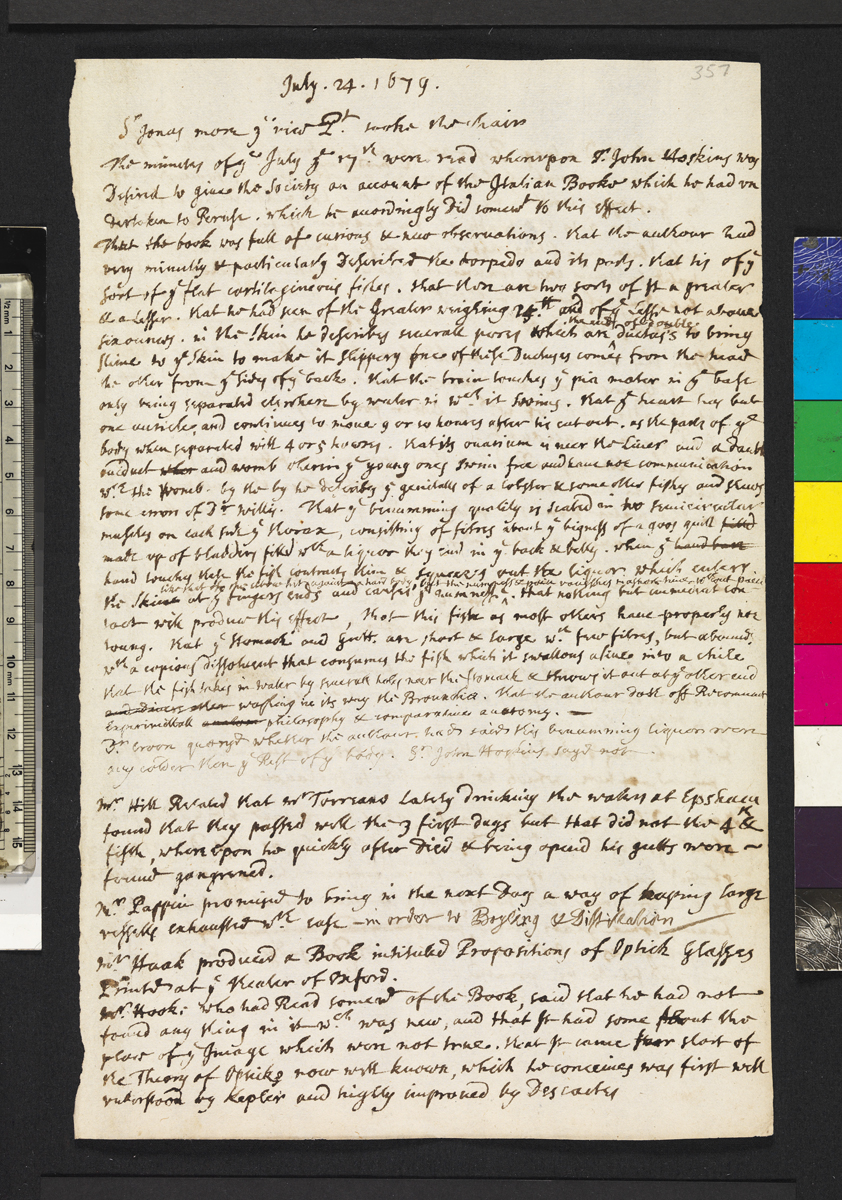 357
July. 24. 1679.
Sr Jonas more ye vice Pt tooke the chair
The minutes of ye July ye 17th were read whereupon Sr John Hoskins was
Desired to giue the Society an account of the Italian Booke which he had vn
dertaken to Peruse. which he accordingly Did somewt to this effect.
That the book was full of curious & new observations. that the authour had
very minutly & particularly Described the torpedo and its parts. that tis of ye
sort of ye flat cartilagineous fishes. that there are two sorts of It a greater
& a Lesser. that he had seen of the Greater weighing 24lb and of ye Lesse not aboue
six ounces. in the skin he describes seuerall pores which are the ends of double ductus's to bring
slime to ye skin to make it slippery one of these Ductuses comes from the head
the other from ye sides of ye back. That the brain touches ye pia mater in ye base
only being separated elswhere by water in wch it swims. that ye heart has but
one auricle, and continues to moue 9 or 10 houres after tis cut out. as the parts of ye
body when separated will 4 or 5 howres. that its ouarium is neer the Liuer and a double
ouiduct and womb wherin ye young ones swim free and haue noe communication
wth the womb. by the by he describes ye genitalls of a lobster & some other fishes and shews
some errors of Dr willis. That ye benumming quality is seated in two semicircular
muscles on each side ye thorax, consisting of fibres about ye bigness of a goos quill filled
made up of bladders filled wth a liquor they end in ye back & belly. when ye hand
hand touches these the fish contracts them & squeezes out the liquor which enters
the Skin at ye fingers ends and causes ye numness. that nothing but immediat con
tact will produce this effect, that this fish as most others haue properly noe
young. that ye stomack and Gutts are short & large wth few fibres, but abounds
wth a copious dissoluent that consumes the fish which it swallows aliue into a chile
that the fish takes in water by seuerall holes near the stomack & throws it out at ye other end
washing in its way the Bronchia. that the authour doth oft Recommend
Experimentall philosophy & comparatiue anatomy.
Dr croon queryd whether the authour had said this benumming liquor were
any colder then ye Rest of ye body. Sr John Hoskins sayd not.
Mr Hill Related that mr Torreano Lately drinking the waters at Epsham
found that they passed well the 3 first days but that did not the 4th &
fifth, whereupon he quickly after died & being opend his gutts were ~
found gangrened.
Mr Pappin promised to bring in the next Day a way of keeping large
vessells exhausted wth ease - in order to Boyling & Distillation
Mr Haak produced a Book intituled Propositions of Optick Glasses
Printed at ye theater of Oxford.
Mr Hooke who had Read somewt of the Book, said that he had not
found any thing in it wch was new, and that It had some about the
place of ye Image which were not true. that It came short of
the Theory of Opticks now well known, which he conceiues was first well
vnderstood by Kepler and highly improued by Descartes